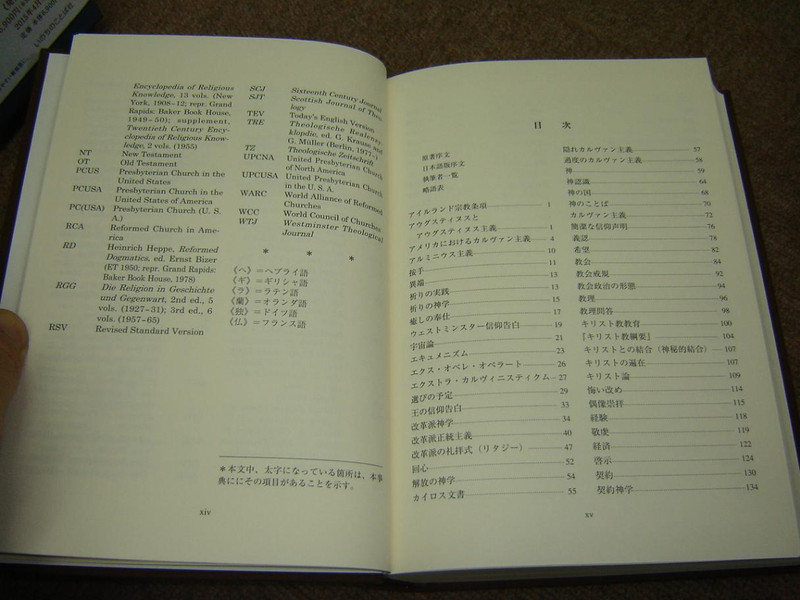 いのちのことば社
Encyclopedia of Religious
Knowledge, 13 vols. (New
York, 1908–12; repr. Grand
Rapids: Baker Book House,
1949–50); supplement,
Twentieth Century Ency-
clopedia of Religious Know-
ledge, 2 vols. (1955)
NT New Testament
OT Old Testament
PCUS Presbyterian Church in the
United States
PCUSA Presbyterian Church in the
United States of America
PC(USA) Presbyterian Church (U. S.
A.)
RCA Reformed Church in Ame-
rica
RD Heinrich Heppe, Reformed
Dogmatics, ed. Ernst Bizer
(ET 1950; repr. Grand Rapids:
Baker Book House, 1978)
RGG Die Religion in Geschichte
und Gegenwart, 2nd ed., 5
vols. (1927–31); 3rd ed., 6
vols. (1957–65)
RSV Revised Standard Version
SCJ Sixteenth Century Journal
SJT Scottish Journal of Theo-
logy
TEV Today's English Version
TRE Theologische Realenzy-
klopdie, ed. G. Krause and
G. Müller (Berlin, 1977–)
TZ Theologische Zeitschrift
UPCNA United Presbyterian Church
of North America
UPCUSA United Presbyterian Church
in the U. S. A.
WARC World Alliance of Reformed
Churches
WCC World Council of Churches
WTJ Westminster Theological
Journal
* * *
《ヘ》=ヘブライ語
《ギ》=ギリシャ語
《ラ》=ラテン語
《蘭》=オランダ語
《独》=ドイツ語
《仏》=フランス語
*本文中、太字になっている箇所は、本事
典ににその項目があることを示す。
xiv
目 次
原著序文
日本語版序文
執筆者一覧
略語表
アイルランド宗教条項 1
アウグスティヌスと
アウグスティヌス主義 1
アメリカにおけるカルヴァン主義 4
アルミニウス主義 10
按手 11
異端 13
祈りの実践 13
祈りの神学 15
癒しの奉仕 17
ウェストミンスター信仰告白 19
宇宙論 21
エキュメニズム 23
エクス・オペレ・オペラート 26
エクストラ・カルヴィニスティクム 27
選びの予定 29
王の信仰告白 33
改革派神学 34
改革派正統主義 40
改革派の礼拝式(リタジー) 47
回心 52
解放の神学 54
カイロス文書 55
隠れカルヴァン主義 57
過度のカルヴァン主義 58
神 59
神認識 64
神の国 68
神のことば 70
カルヴァン主義 72
簡潔な信仰声明 76
義認 78
希望 82
教会 84
教会戒規 92
教会政治の形態 94
教理 96
教理問答 98
キリスト教教育 100
『キリスト教綱要』 104
キリストとの結合(神秘的結合) 107
キリストの遍在 107
キリスト論 109
悔い改め 114
偶像崇拝 115
経験 118
敬虔 119
経済 122
啓示 124
契約 130
契約神学 134
xv